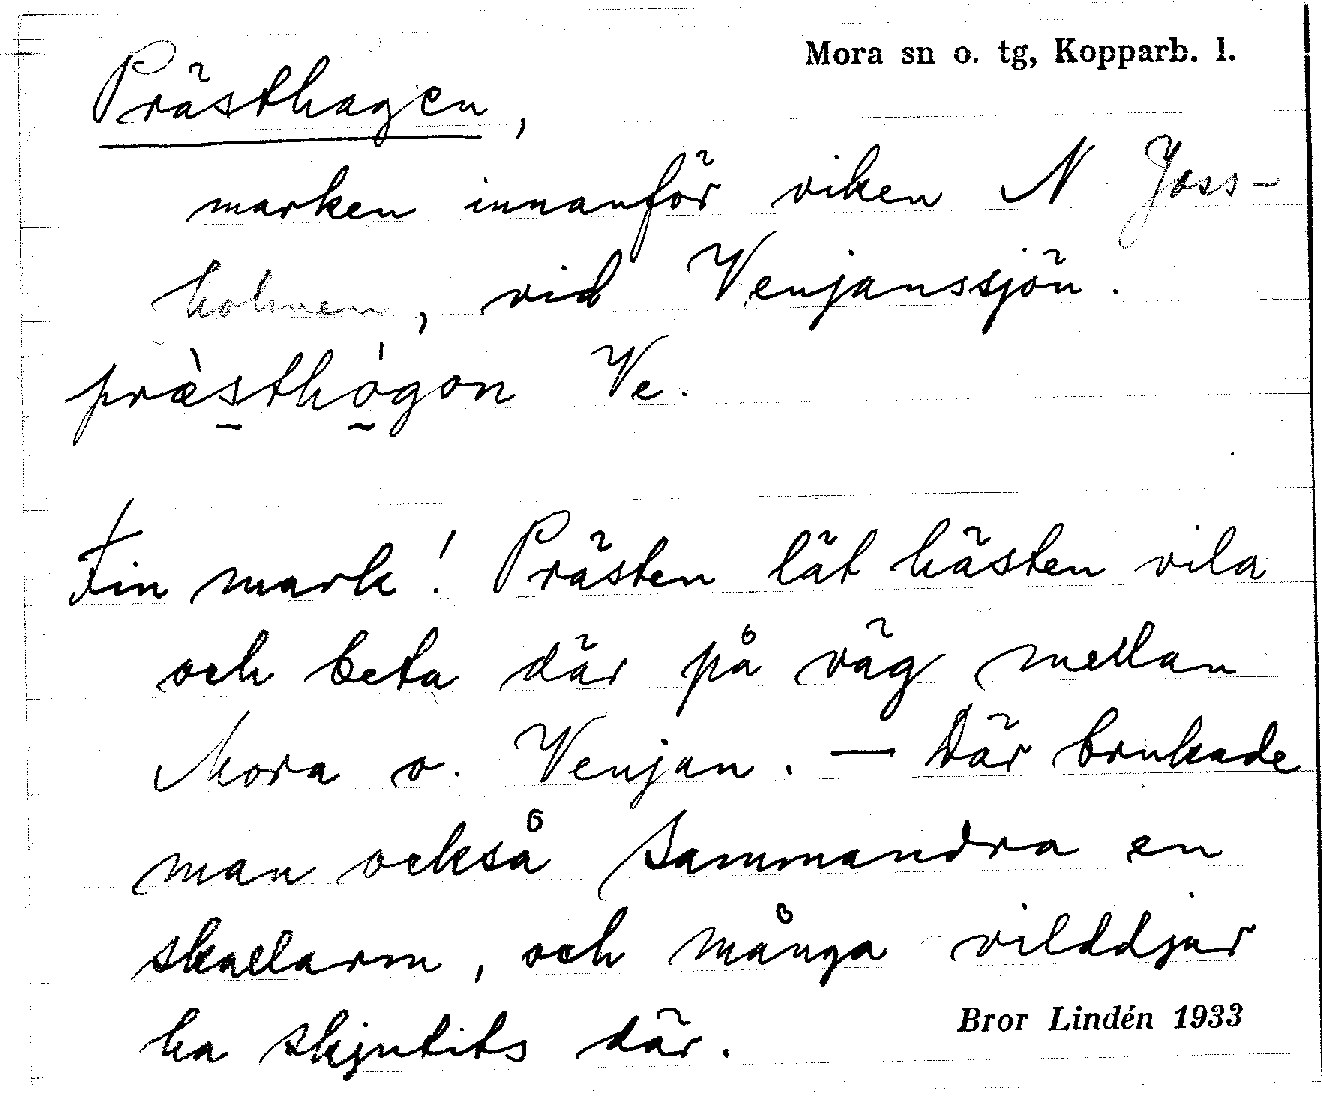 Mora sn o. tg, Kopparb. l.
Prästhagen,
marken innanför viken N Joss-
holmen, vid Venjanssjön.
præ̀sthógon Ve.
Fin mark! Prästen lät hästen vila
och beta där på väg mellan
Mora o. Venjan. — Där brukade
man också sammandra en
skallarm, och många vilddjur
ha skjutits där.
Bror Lindén 1933